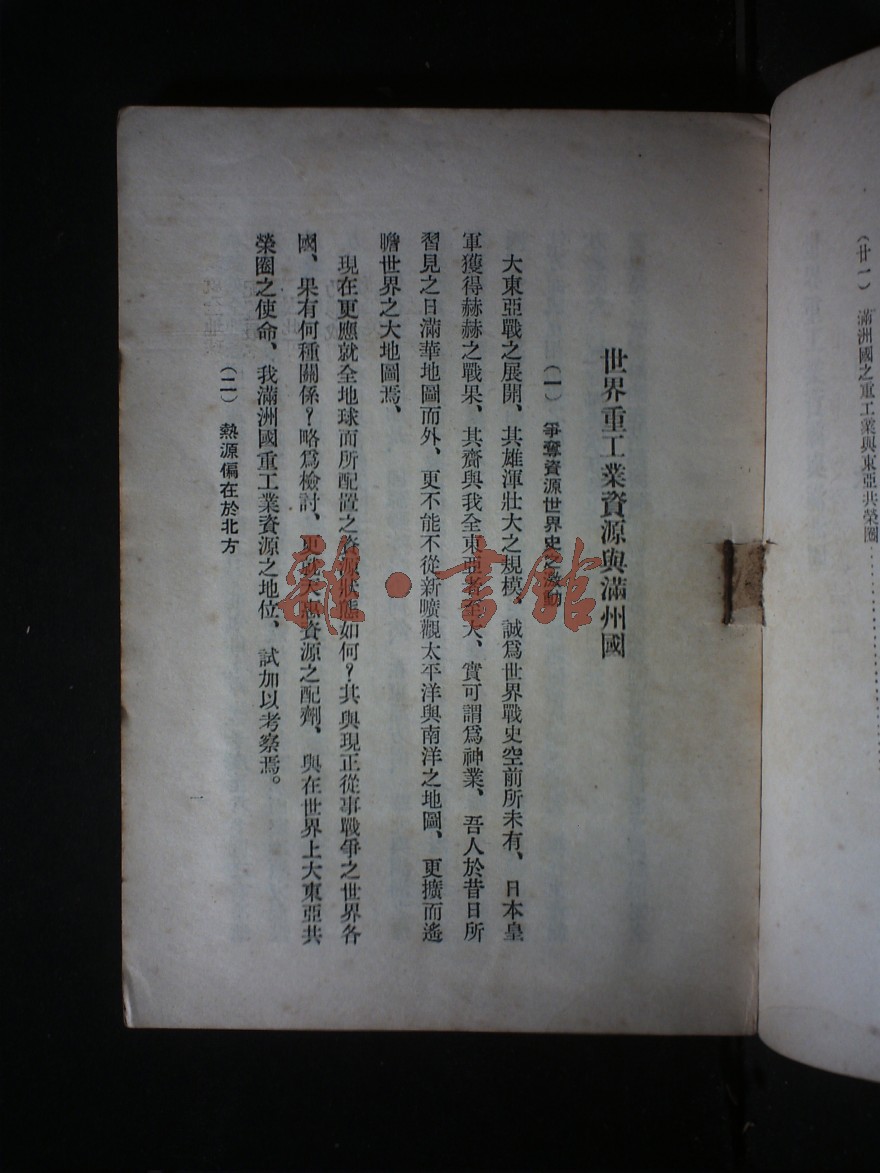 (廿一) 滿洲國之重工業與東亞共榮圈
世界重工業資源與滿州國
(一) 爭奪資源世界史之激動
大東亞戰之展開、其雄渾壯大之規模、誠爲世界戰史空前所未有、日本皇
軍獲得赫赫之戰果、其齎與我全東亞者至大、實可謂爲神業、吾人於昔日所
習見之日滿華地圖而外、更不能不從新曠觀太平洋與南洋之地圖、更擴而遙
瞻世界之大地圖焉、
現在更應就全地球而所配置之資源狀態如何?其與現正從事戰爭之世界各
國、果有何種關係?略爲檢討、更就大惠資源之配劑、與在世界上大東亞共
榮圈之使命、我滿洲國重工業資源之地位、試加以考察焉。
(二) 熱源偏在於北方
一
雜·書館